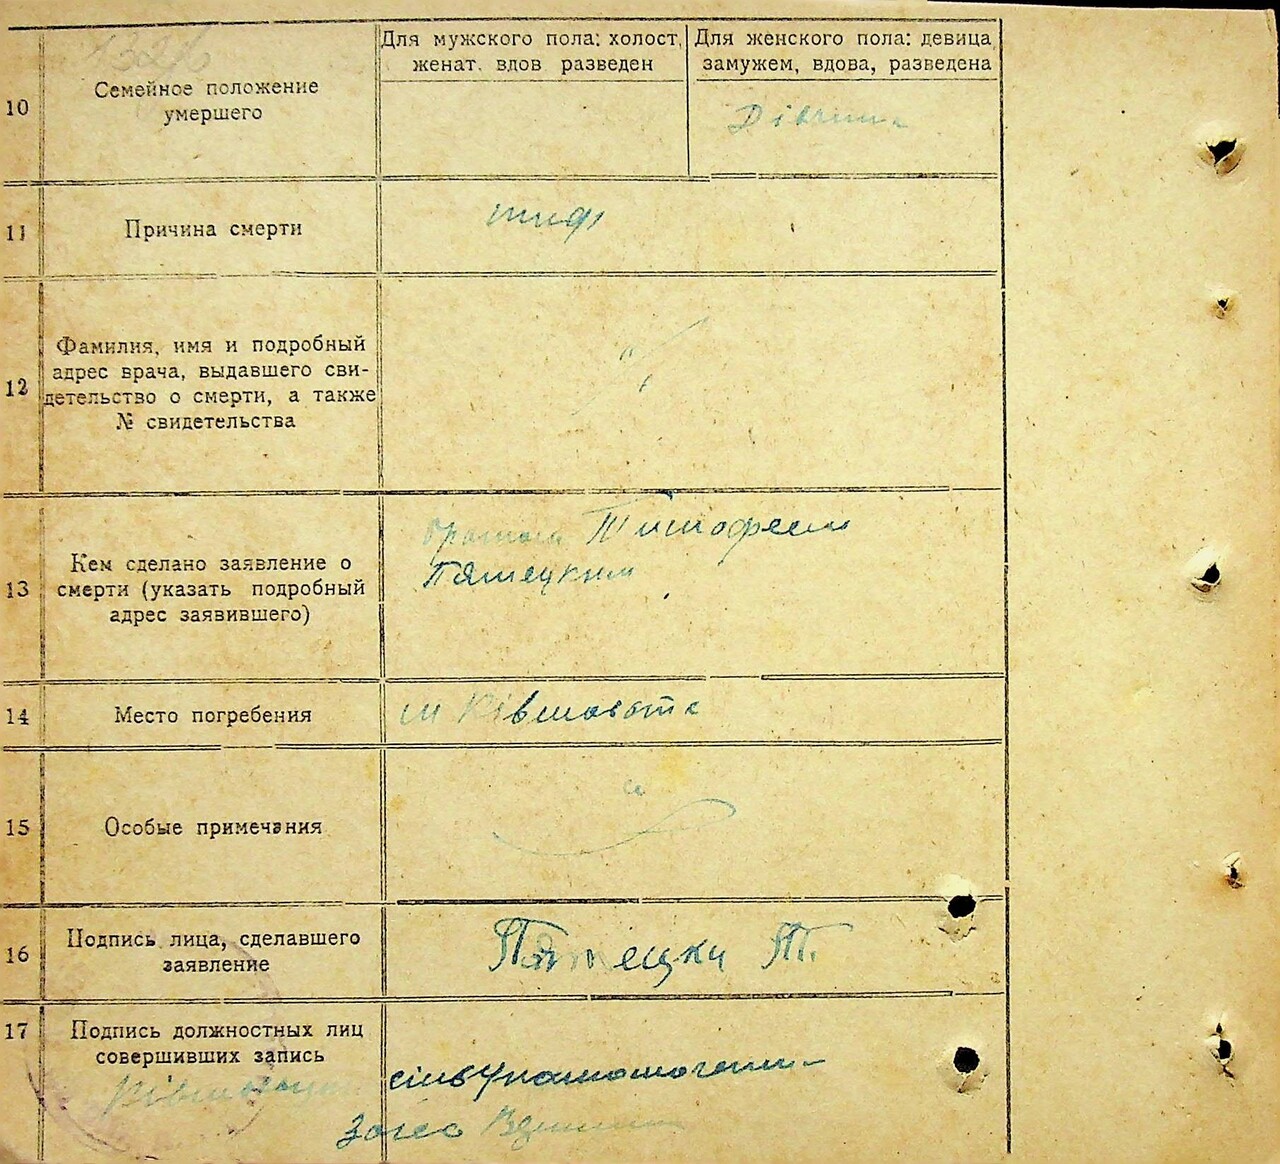 1326
Для мужского пола: холост,
женат. вдов разведен
Для женского пола: девица
замужем, вдова, разведена
10
Семейное положение
умершего
Дівчина
11
Причина смерти
тиф
12
Фамилия, имя и подробный
адрес врача, выдавшего сви-
детельство о смерти, а также
№ свидетельства
13
Кем сделано заявление о
смерти (указать подробный
адрес заявившего)
братом Тимофеем
Пятецким
14
Место погребения
м Ківшовата
15
Особые примечания
16
Подпись лица, сделавшего
заявление
Пятецки Т.
17
Подпись должностных лиц
совершивших запись
сільуповноможени
Загсо